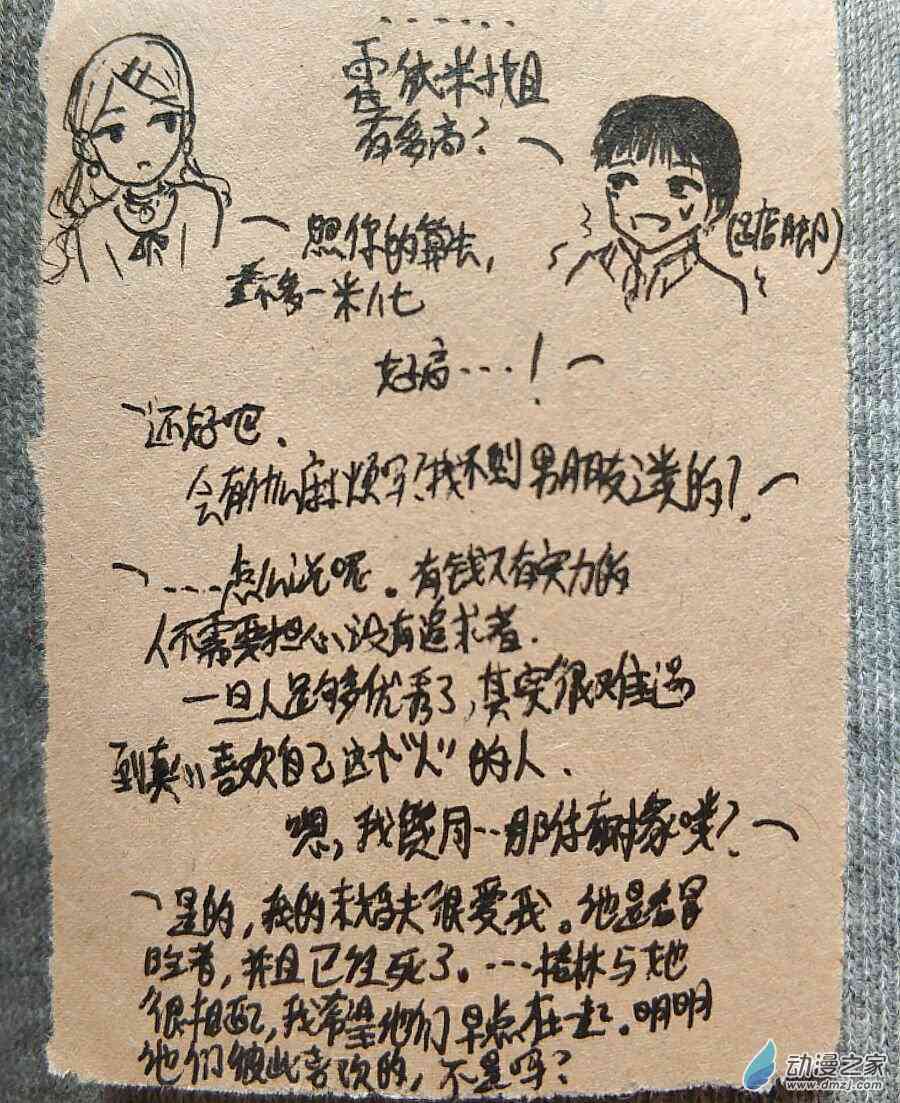 ......
霍依米小姐
有多高？
照你的算法，
差不多一米八七
(踮脚)
好高....！
还好吧．
会有什么麻烦吗？找不到男朋友之类的？
....怎么说呢。有钱又有实力的
人不需要担心没有追求者．
一旦人足够多优秀了，其实很难遇
到真心喜欢自己这个“人”的人．
嗯，我 ..那你有对象喽？
是的，我的未婚夫很爱我。他是名冒
险者，并且已经死了。....格林与她
很相配，我希望他们早点在一起。明明
他们彼此喜欢的，不是吗？
动漫之家
www.dmzj.com